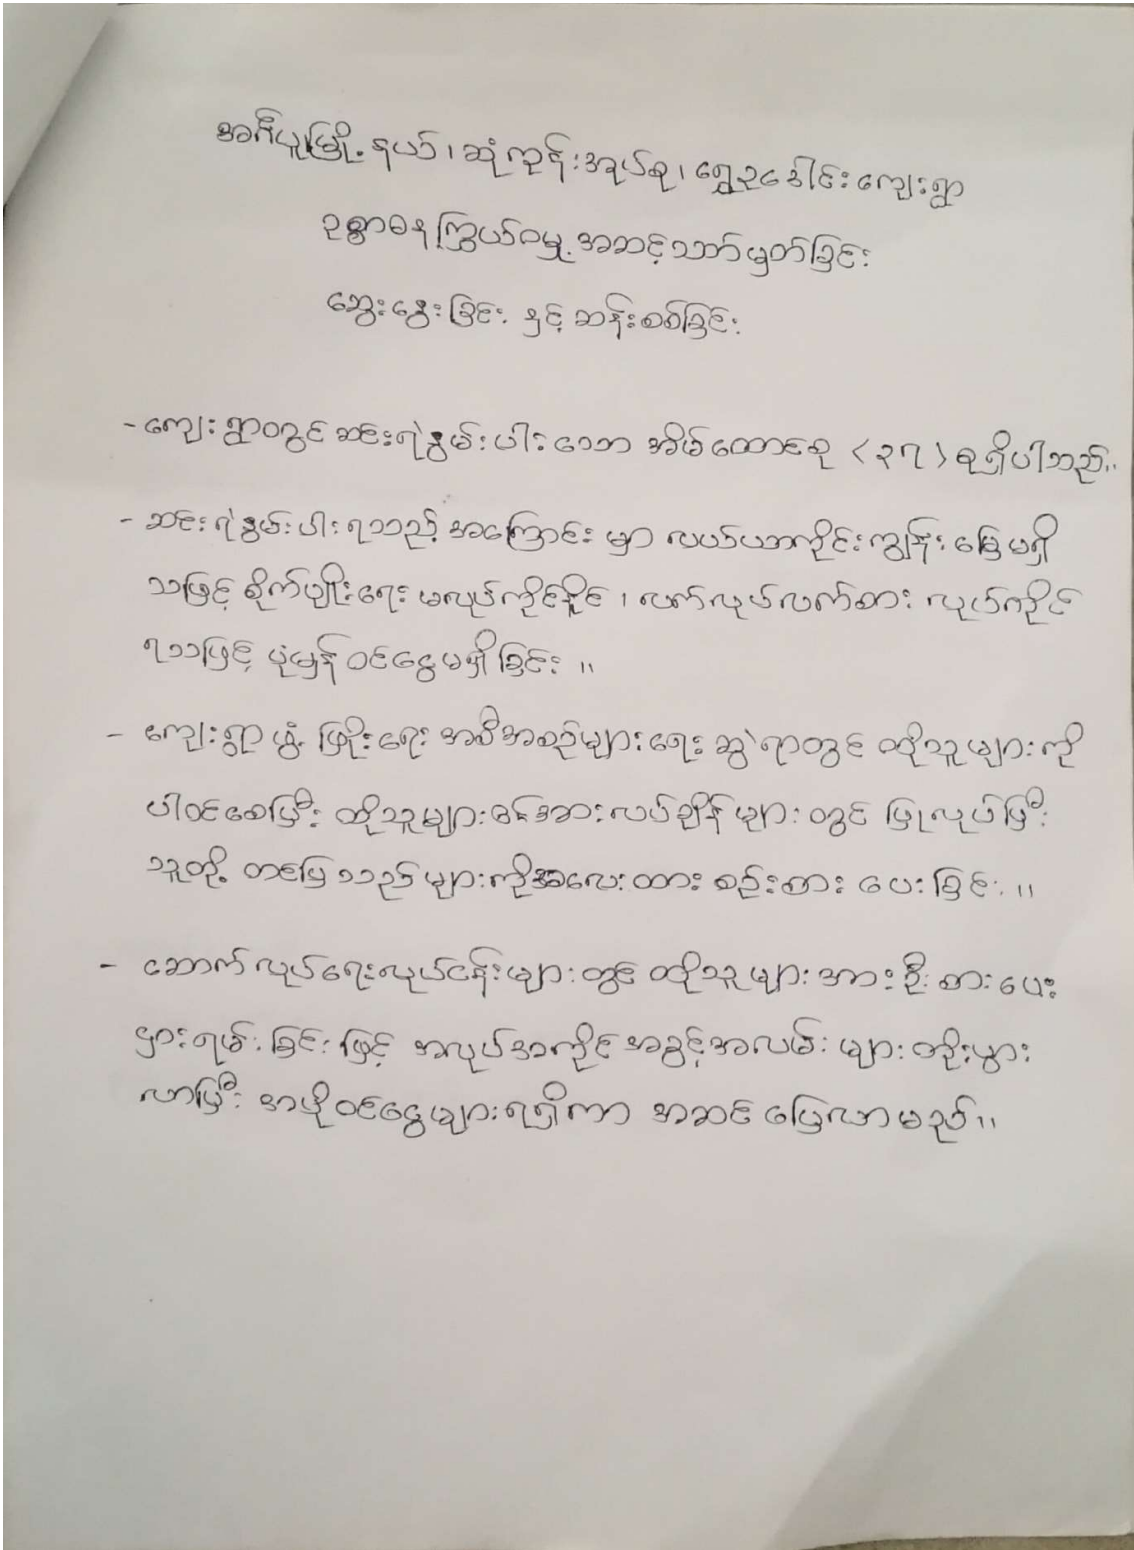 အင်္ဂပူမြို့နယ်၊ ဆုံကုန်းအုပ်စု၊ ရွှေဥဒေါင်းကျေးရွာ
ဥစ္စာဓနကြွယ်ဝမှု အဆင့်သတ်မှတ်ခြင်း
ဆွေးနွေးခြင်း နှင့် ဆန်းစစ်ခြင်း
- ကျေးရွာတွင် ဆင်းရဲနွမ်းပါးသော အိမ်ထောင်စု (၃၇) စုရှိပါသည်။
- ဆင်းရဲနွမ်းပါးရသည့် အကြောင်းမှာ လယ်ယာကိုင်းကျွန်းမြေမရှိ
သဖြင့် စိုက်ပျိုးရေး မလုပ်ကိုင်နိုင်၊ လက်လုပ်လက်စား လုပ်ကိုင်
ရသဖြင့် ပုံမှန်ဝင်ငွေမရှိခြင်း။
- ကျေးရွာဖွံ့ဖြိုးရေး အစီအစဉ်များရေးဆွဲရာတွင် ထိုသူများကို
ပါဝင်စေပြီး ထိုသူများ၏အားလပ်ချိန်များတွင် ပြုလုပ်ပြီး
သူတို့ တင်ပြသည်များကိုအလေးထား စဉ်းစားပေးခြင်း။
- ဆောက်လုပ်ရေးလုပ်ငန်းများတွင် ထိုသူများအား ဦးစားပေး
ငှားရမ်းခြင်းဖြင့် အလုပ်အကိုင်အခွင့်အလမ်းများ တိုးပွား
လာပြီး အပိုဝင်ငွေများရရှိကာ အဆင်ပြေလာမည်။